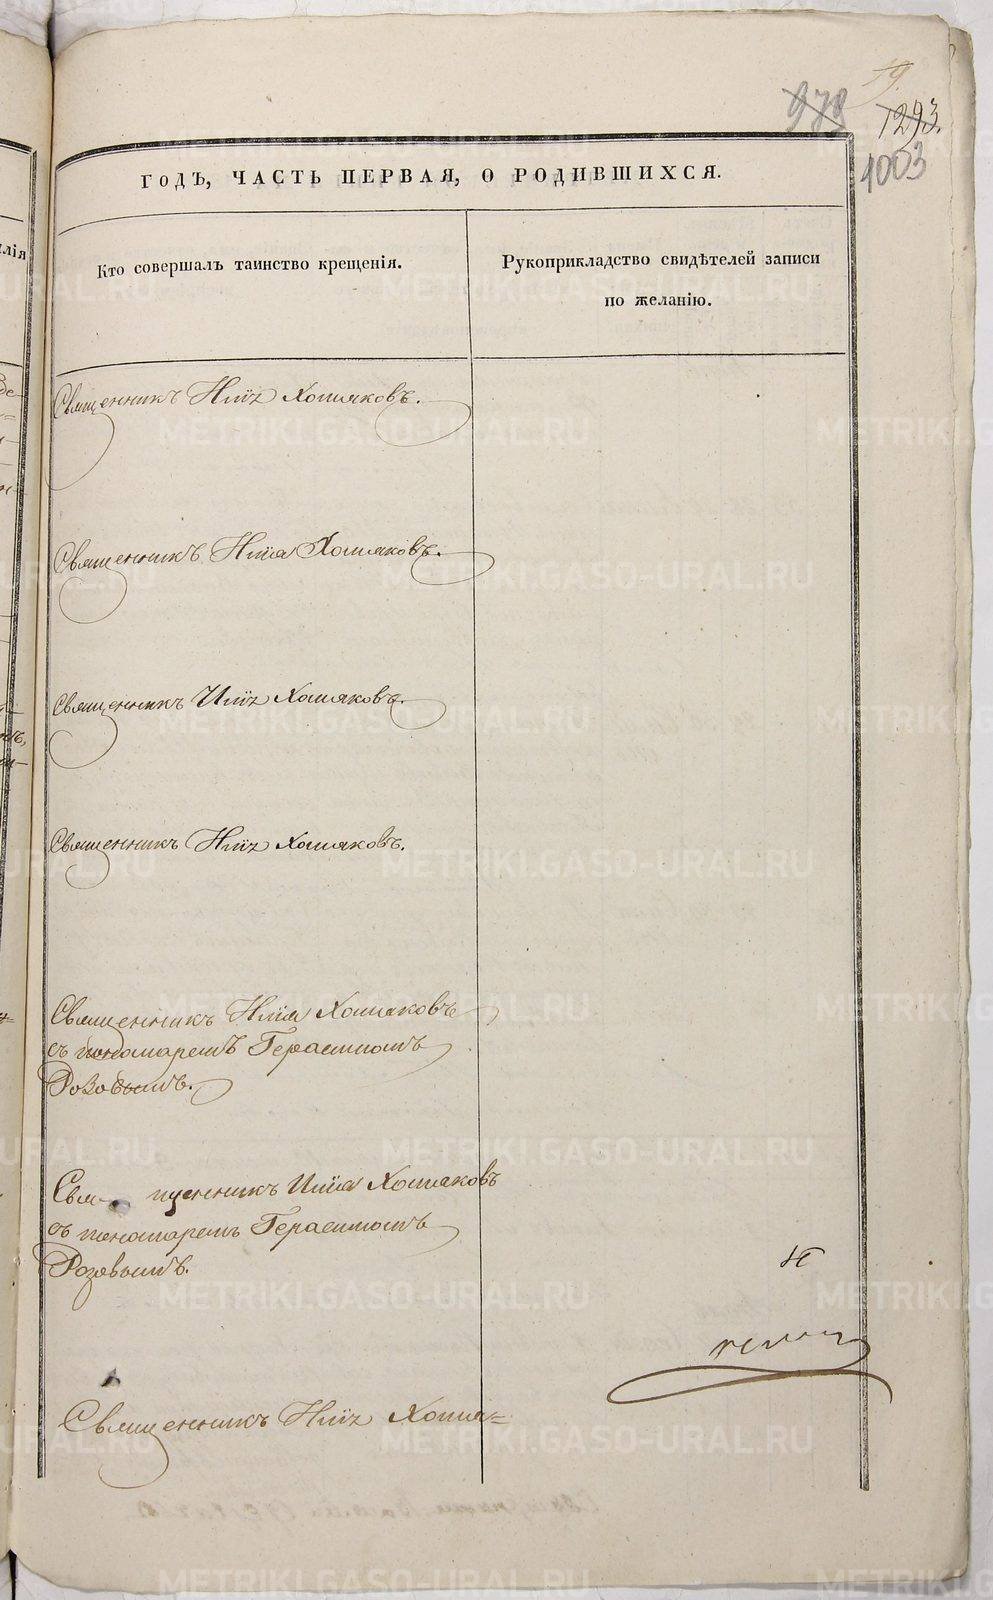 19.
978
1293.
1003
ГОДЪ, ЧАСТЬ ПЕРВАЯ, О РОДИВШИХСЯ.
Кто совершалъ таинство крещенія.
Рукоприкладство свидѣтелей записи
по желанію.
Священникъ Иліа Хомяковъ.
Священникъ Иліа Хомяковъ.
Священникъ Иліа Хомяковъ.
Священникъ Иліа Хомяковъ.
Священникъ Иліа Хомяковъ
съ пономаремъ Герасимомъ
Розовымъ.
Свя- щенникъ Иліа Хомяковъ
съ пономаремъ Герасимомъ
Розовымъ.
Священникъ Иліа Хомя=
METRIKI.GASO-URAL.RU